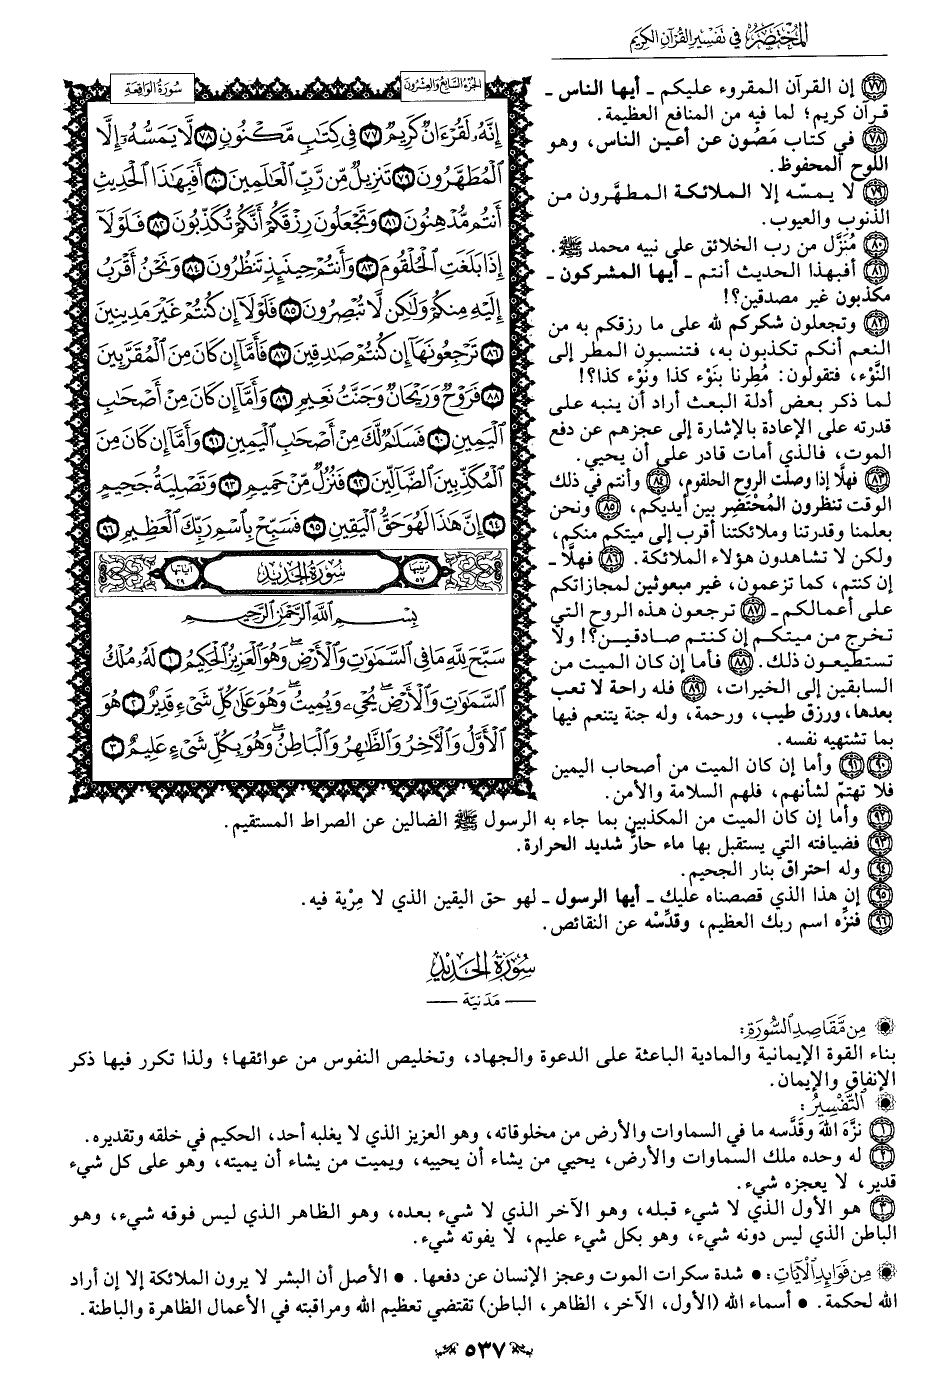 المُخْتَصَرُ في تَفسير القُرآن الكَريم
الجزء السابع والعشرون
سورة الواقعة
إِنَّهُۥ لَقُرْءَانٌ كَرِيمٌ ٧٧ فِى كِتَٰبٍ مَّكْنُونٍ ٧٨ لَّا يَمَسُّهُۥٓ إِلَّا
ٱلْمُطَهَّرُونَ ٧٩ تَنزِيلٌ مِّن رَّبِّ ٱلْعَٰلَمِينَ ٨٠ أَفَبِهَٰذَا ٱلْحَدِيثِ
أَنتُم مُّدْهِنُونَ ٨١ وَتَجْعَلُونَ رِزْقَكُمْ أَنَّكُمْ تُكَذِّبُونَ ٨٢ فَلَوْلَآ
إِذَا بَلَغَتِ ٱلْحُلْقُومَ ٨٣ وَأَنتُمْ حِينَئِذٍ تَنظُرُونَ ٨٤ وَنَحْنُ أَقْرَبُ
إِلَيْهِ مِنكُمْ وَلَٰكِن لَّا تُبْصِرُونَ ٨٥ فَلَوْلَآ إِن كُنتُمْ غَيْرَ مَدِينِينَ
٨٦ تَرْجِعُونَهَآ إِن كُنتُمْ صَٰدِقِينَ ٨٧ فَأَمَّآ إِن كَانَ مِنَ ٱلْمُقَرَّبِينَ
٨٨ فَرَوْحٌ وَرَيْحَانٌ وَجَنَّتُ نَعِيمٍ ٨٩ وَأَمَّآ إِن كَانَ مِنْ أَصْحَٰبِ
ٱلْيَمِينِ ٩٠ فَسَلَٰمٌ لَّكَ مِنْ أَصْحَٰبِ ٱلْيَمِينِ ٩١ وَأَمَّآ إِن كَانَ مِنَ
ٱلْمُكَذِّبِينَ ٱلضَّآلِّينَ ٩٢ فَنُزُلٌ مِّنْ حَمِيمٍ ٩٣ وَتَصْلِيَةُ جَحِيمٍ
٩٤ إِنَّ هَٰذَا لَهُوَ حَقُّ ٱلْيَقِينِ ٩٥ فَسَبِّحْ بِٱسْمِ رَبِّكَ ٱلْعَظِيمِ ٩٦
ترتيبها ٥٧ سورة الحديد آياتها ٢٩
بِسْمِ ٱللَّهِ ٱلرَّحْمَٰنِ ٱلرَّحِيمِ
سَبَّحَ لِلَّهِ مَا فِى ٱلسَّمَٰوَٰتِ وَٱلْأَرْضِ ۖ وَهُوَ ٱلْعَزِيزُ ٱلْحَكِيمُ ١ لَهُۥ مُلْكُ
ٱلسَّمَٰوَٰتِ وَٱلْأَرْضِ ۖ يُحْىِۦ وَيُمِيتُ ۖ وَهُوَ عَلَىٰ كُلِّ شَىْءٍ قَدِيرٌ ٢ هُوَ
ٱلْأَوَّلُ وَٱلْءَاخِرُ وَٱلظَّٰهِرُ وَٱلْبَاطِنُ ۖ وَهُوَ بِكُلِّ شَىْءٍ عَلِيمٌ ٣
٧٧ إن القرآن المقروء عليكم ـ أيها الناس ـ
قرآن كريم؛ لما فيه من المنافع العظيمة.
٧٨ في كتاب مَصُون عن أعين الناس، وهو
اللوح المحفوظ.
٧٩ لا يمسّه إلا الملائكة المطهَّرون من
الذنوب والعيوب.
٨٠ مُنَزَّل من رب الخلائق على نبيه محمد ﷺ.
٨١ أفبهذا الحديث أنتم ـ أيها المشركون ـ
مكذبون غير مصدقين؟!
٨٢ وتجعلون شكركم لله على ما رزقكم به من
النعم أنكم تكذبون به، فتنسبون المطر إلى
النَّوْء، فتقولون: مُطِرنا بنَوْء كذا ونَوْء كذا؟!
لما ذكر بعض أدلة البعث أراد أن ينبه على
قدرته على الإعادة بالإشارة إلى عجزهم عن دفع
الموت، فالذي أمات قادر على أن يحيي.
٨٣ فهلَّا إذا وصلت الروح الحلقوم، ٨٤ وأنتم في ذلك
الوقت تنظرون المُحْتَضِر بين أيديكم، ٨٥ ونحن
بعلمنا وقدرتنا وملائكتنا أقرب إلى ميتكم منكم،
ولكن لا تشاهدون هؤلاء الملائكة. ٨٦ فهلَّا ـ
إن كنتم، كما تزعمون، غير مبعوثين لمجازاتكم
على أعمالكم ـ ٨٧ ترجعون هذه الروح التي
تخرج من ميتكم إن كنتم صادقين؟! ولا
تستطيعون ذلك. ٨٨ فأما إن كان الميت من
السابقين إلى الخيرات، ٨٩ فله راحة لا تعب
بعدها، ورزق طيب، ورحمة، وله جنة يتنعم فيها
بما تشتهيه نفسه.
٩٠ ٩١ وأما إن كان الميت من أصحاب اليمين
فلا تهتمّ لشأنهم، فلهم السلامة والأمن.
٩٢ وأما إن كان الميت من المكذبين بما جاء به الرسول ﷺ الضالين عن الصراط المستقيم.
٩٣ فضيافته التي يستقبل بها ماء حارٌّ شديد الحرارة.
٩٤ وله احتراق بنار الجحيم.
٩٥ إن هذا الذي قصصناه عليك ـ أيها الرسول ـ لهو حق اليقين الذي لا مِرْية فيه.
٩٦ فنزِّه اسم ربك العظيم، وقدِّسْه عن النقائص.
سُورَةُ الحَدِيدِ
— مَدَنيّة —
مِن مَّقَاصِدِ السُّورَةِ:
بناء القوة الإيمانية والمادية الباعثة على الدعوة والجهاد، وتخليص النفوس من عوائقها؛ ولذا تكرر فيها ذكر
الإنفاق والإيمان.
التَّفْسِيرُ:
١ نزَّه اللهَ وقدَّسه ما في السماوات والأرض من مخلوقاته، وهو العزيز الذي لا يغلبه أحد، الحكيم في خلقه وتقديره.
٢ له وحده ملك السماوات والأرض، يحيي من يشاء أن يحييه، ويميت من يشاء أن يميته، وهو على كل شيء
قدير، لا يعجزه شيء.
٣ هو الأول الذي لا شيء قبله، وهو الآخر الذي لا شيء بعده، وهو الظاهر الذي ليس فوقه شيء، وهو
الباطن الذي ليس دونه شيء، وهو بكل شيء عليم، لا يفوته شيء.
مِن فَوَائِدِ الآيَاتِ: • شدة سكرات الموت وعجز الإنسان عن دفعها. • الأصل أن البشر لا يرون الملائكة إلا إن أراد
الله لحكمة. • أسماء الله (الأول، الآخر، الظاهر، الباطن) تقتضي تعظيم الله ومراقبته في الأعمال الظاهرة والباطنة.
٥٣٧